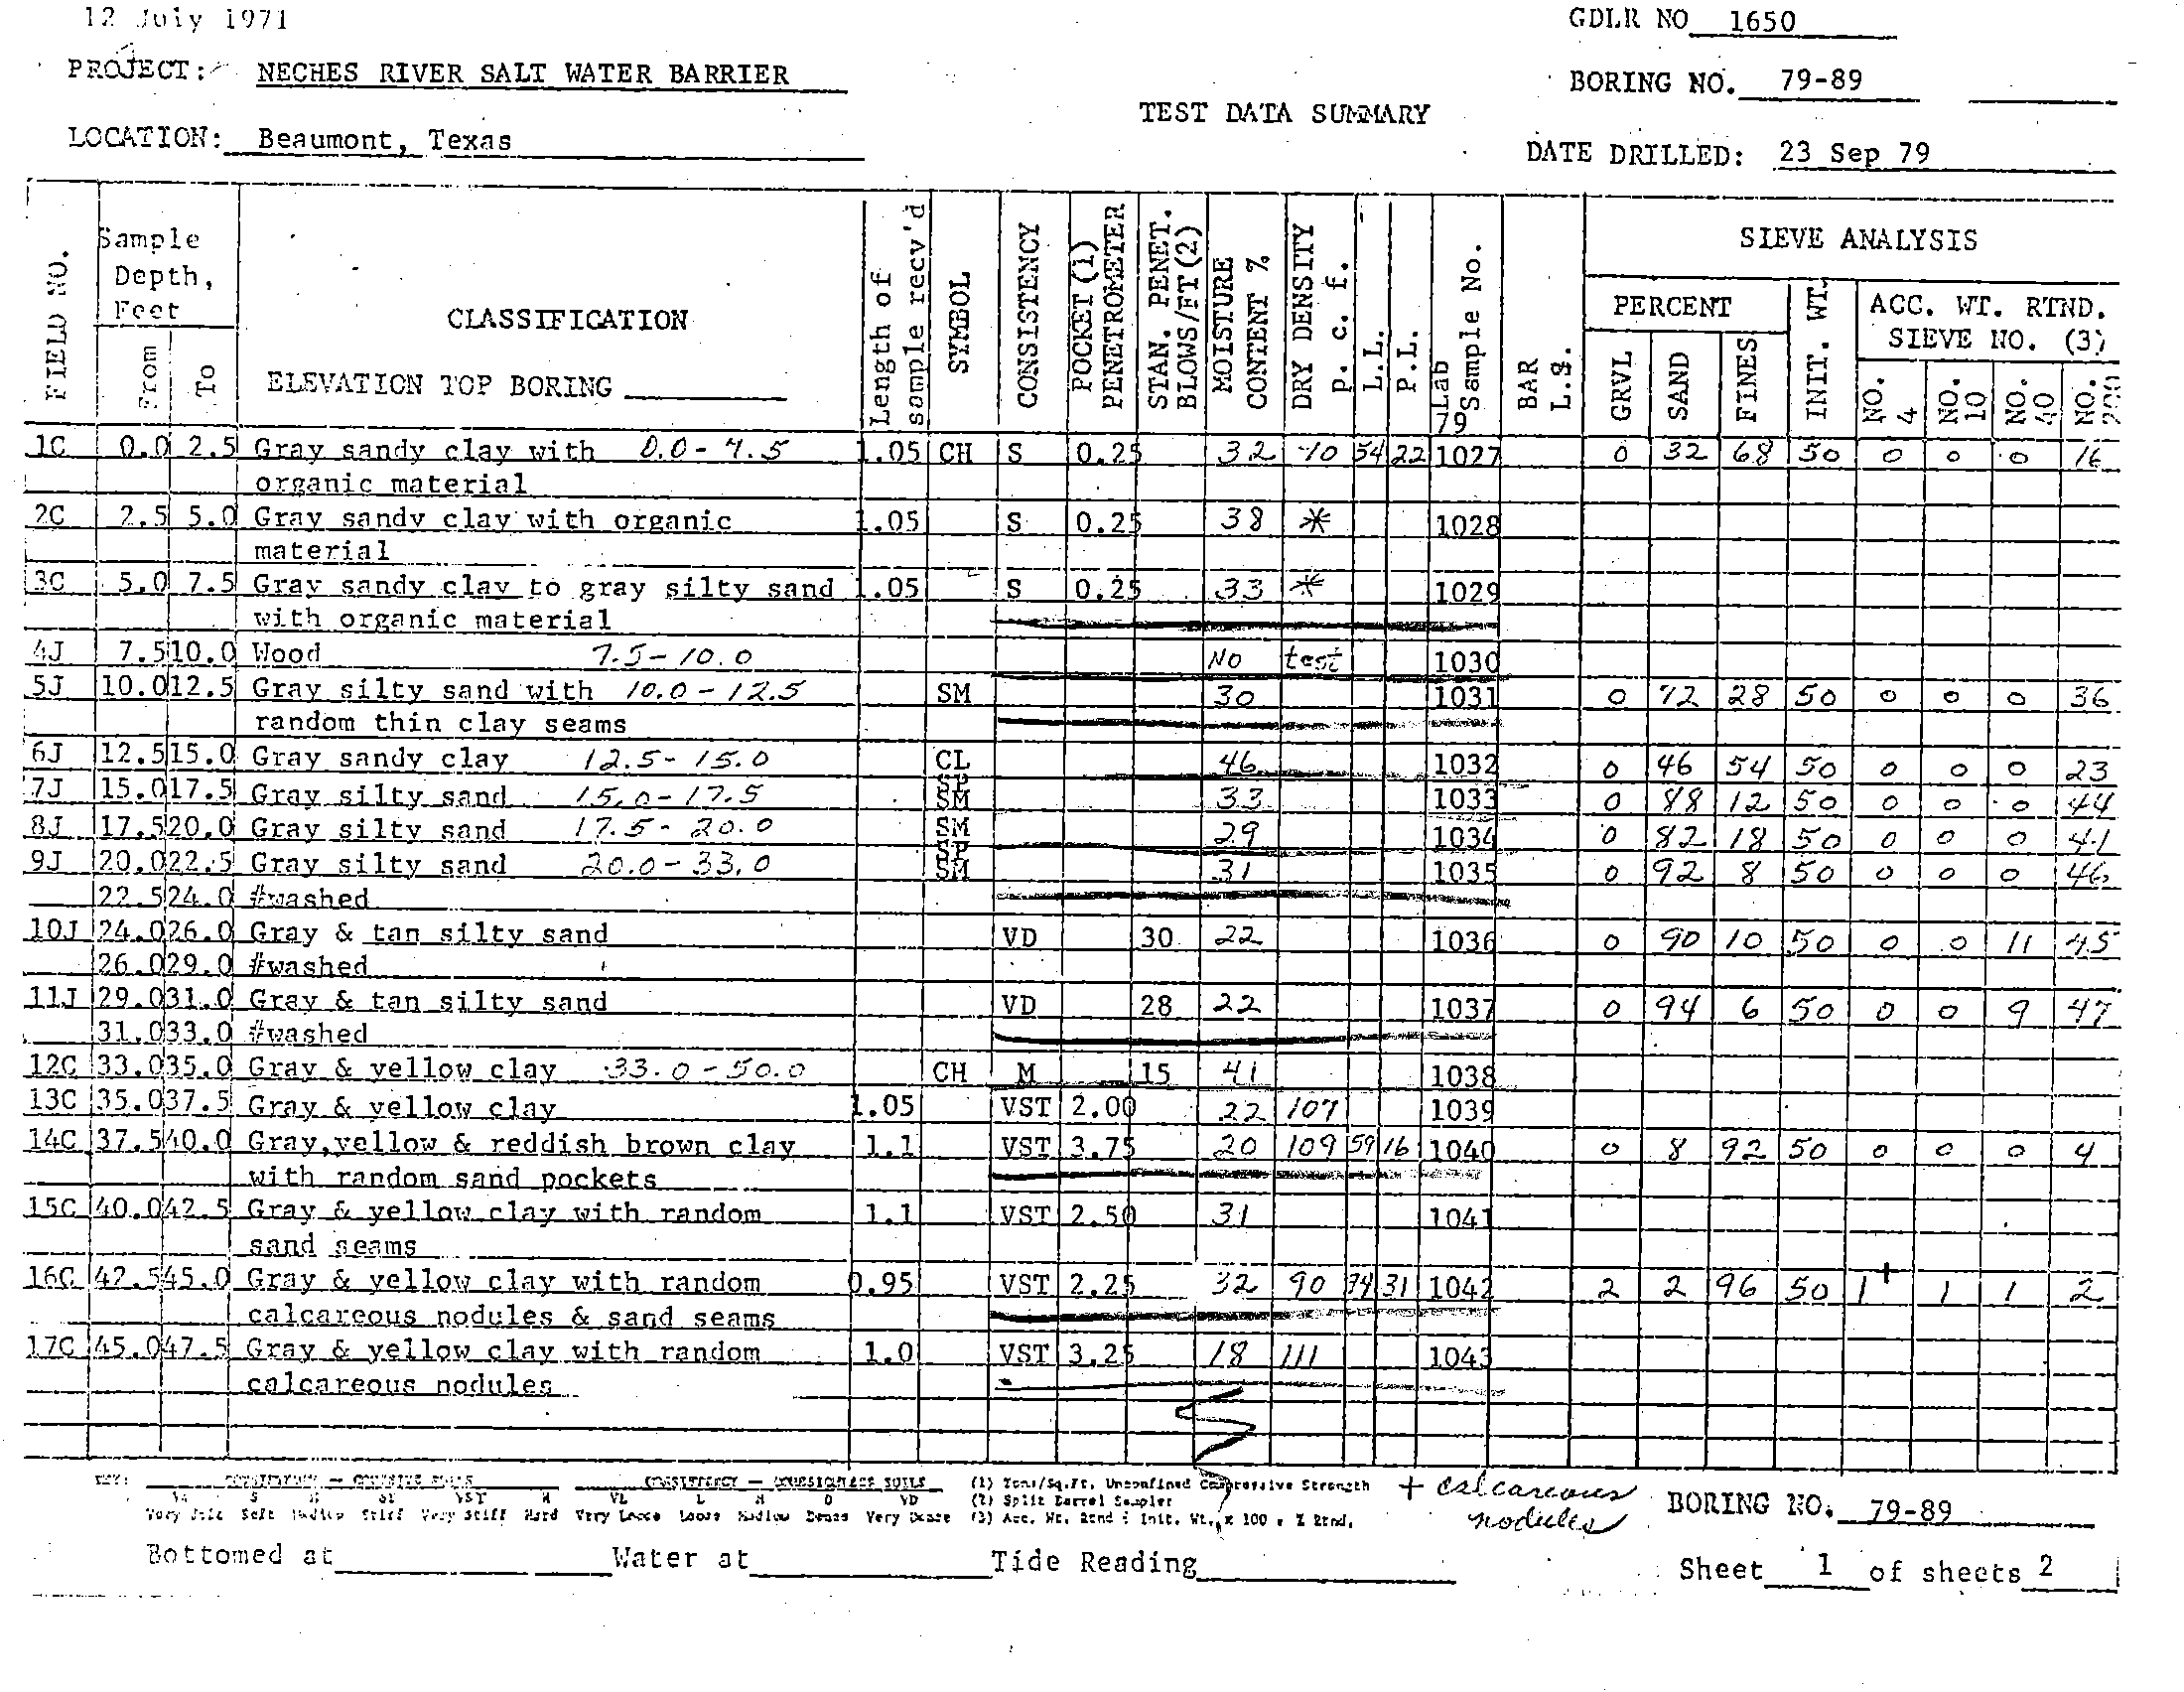 12 July 1971
GDLR NO 1650
PROJECT: NECHES RIVER SALT WATER BARRIER
BORING NO. 79-89
TEST DATA SUMMARY
LOCATION: Beaumont, Texas
DATE DRILLED: 23 Sep 79
FIELD NO.
Sample Depth, Feet
From
To
CLASSIFICATION
ELEVATION TOP BORING
Length of sample recv'd
SYMBOL
CONSISTENCY
POCKET (1) PENETROMETER
STAN. PENET. BLOWS/FT (2)
MOISTURE CONTENT %
DRY DENSITY p. c. f.
L.L.
P.L.
Lab Sample No.
79
BAR L.S.
SIEVE ANALYSIS
PERCENT
GRVL
SAND
FINES
INIT. WT.
ACC. WT. RTND.
SIEVE NO. (3)
NO. 4
NO. 10
NO. 40
NO. 200
1C 0.0 2.5 Gray sandy clay with 0.0-7.5 1.05 CH S 0.25 32 54 22 1027 0 32 68 50 0 0 0 16
organic material
2C 2.5 5.0 Gray sandy clay with organic 1.05 S 0.25 38 * 1028
material
3C 5.0 7.5 Gray sandy clay to gray silty sand 1.05 S 0.25 33 * 1029
with organic material
4J 7.5 10.0 Wood 7.5-10.0 No test 1030
5J 10.0 12.5 Gray silty sand with 10.0-12.5 SM 30 1031 0 72 28 50 0 0 0 36
random thin clay seams
6J 12.5 15.0 Gray sandy clay 12.5-15.0 CL 46 1032 0 46 54 50 0 0 0 23
7J 15.0 17.5 Gray silty sand 15.0-17.5 SP SM 33 1033 0 88 12 50 0 0 0 44
8J 17.5 20.0 Gray silty sand 17.5-20.0 SM 29 1034 0 82 18 50 0 0 0 41
9J 20.0 22.5 Gray silty sand 20.0-33.0 SP SM 31 1035 0 92 8 50 0 0 0 46
22.5 24.0 #washed
10J 24.0 26.0 Gray & tan silty sand VD 30 22 1036 0 90 10 50 0 0 11 45
26.0 29.0 #washed
11J 29.0 31.0 Gray & tan silty sand VD 28 22 1037 0 94 6 50 0 0 9 47
31.0 33.0 #washed
12C 33.0 35.0 Gray & yellow clay 33.0-50.0 CH M 15 41 1038
13C 35.0 37.5 Gray & yellow clay 1.05 VST 2.00 22 107 1039
14C 37.5 40.0 Gray,yellow & reddish brown clay 1.1 VST 3.75 20 109 59 16 1040 0 8 92 50 0 0 0 4
with random sand pockets
15C 40.0 42.5 Gray & yellow clay with random 1.1 VST 2.50 31 1041
sand seams
16C 42.5 45.0 Gray & yellow clay with random 0.95 VST 2.25 32 90 31 1042 2 2 96 50 1+ 1 1 2
calcareous nodules & sand seams
17C 45.0 47.5 Gray & yellow clay with random 1.0 VST 3.25 18 111 1043
calcareous nodules
KEY: CONSISTENCY — COHESIVE SOILS CONSISTENCY — COHESIONLESS SOILS (1) Tons/Sq.Ft. Unconfined Compressive Strength + calcareous nodules
S M ST VST H VL L M D VD (2) Split Barrel Sampler
Very Soft Soft Medium Stiff Very Stiff Hard Very Loose Loose Medium Dense Very Dense (3) Acc. Wt. Rtnd ÷ Init. Wt. x 100 = % Rtnd.
BORING NO. 79-89
Bottomed at Water at Tide Reading
Sheet 1 of sheets 2